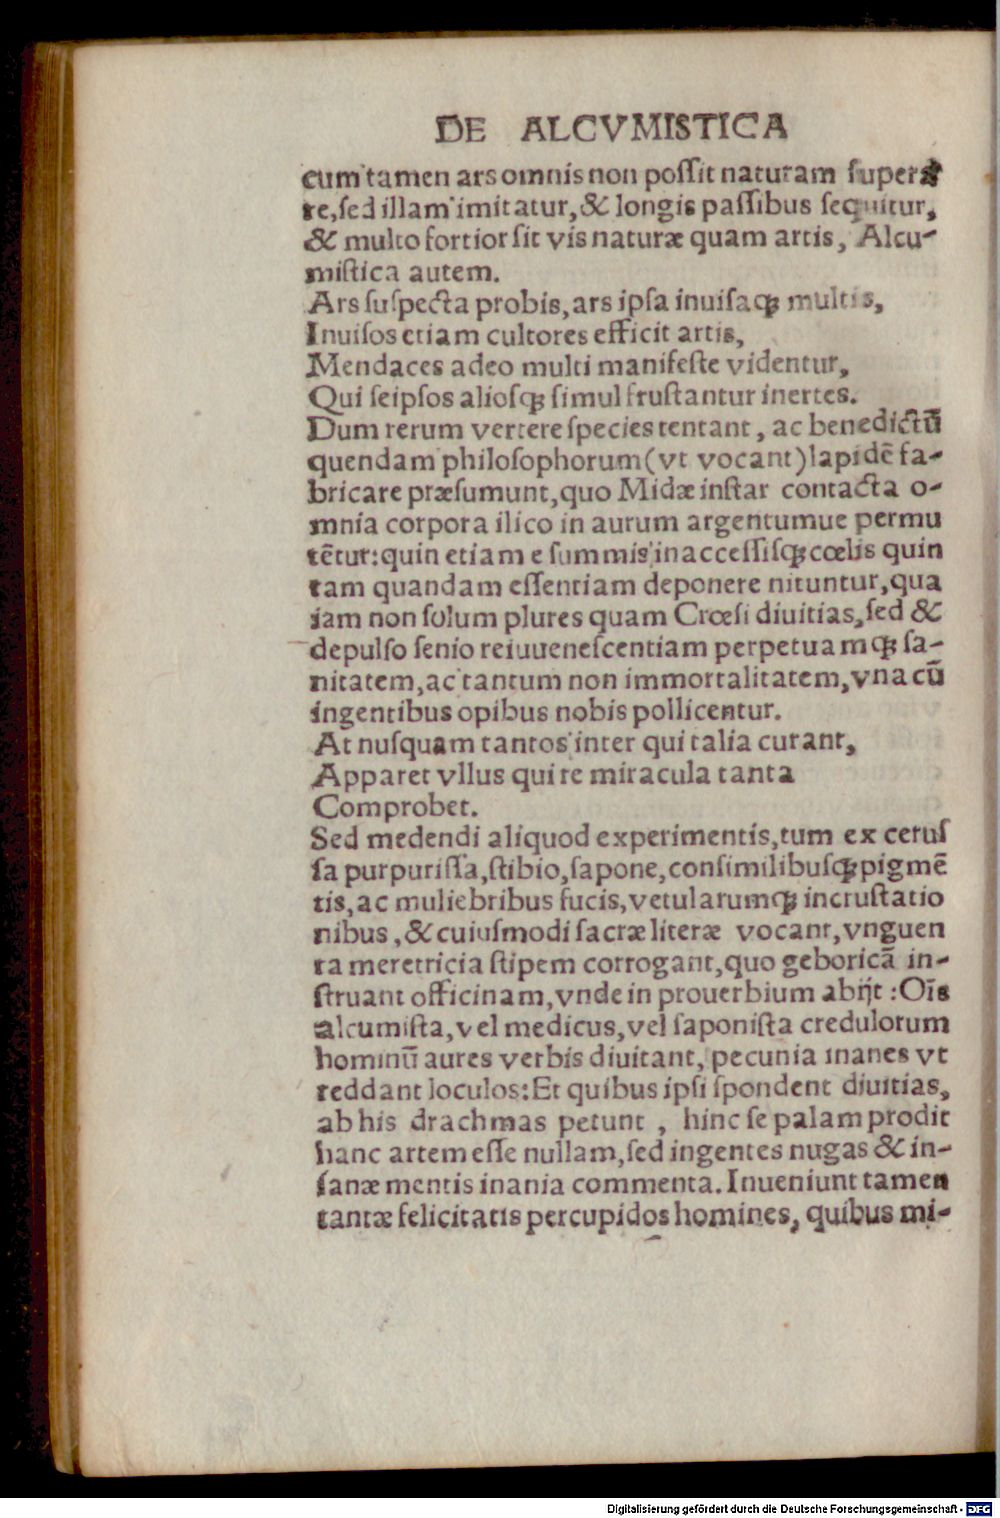 DE ALCVMISTICA
cum tamen ars omnis non poſſit naturam ſupera
re, ſed illam imitatur, & longis paſſibus ſequitur,
& multo fortior ſit vis naturæ quam artis, Alcu-
miſtica autem.
Ars ſuſpecta probis, ars ipſa inuiſaqꝫ multis,
Inuiſos etiam cultores efficit artis,
Mendaces adeo multi manifeſte videntur,
Qui ſeipſos alioſqꝫ ſimul fruſtantur inertes.
Dum rerum vertere ſpecies tentant, ac benedictū
quendam philoſophorum (vt vocant) lapidē fa-
bricare præſumunt, quo Midæ inſtar contacta o-
mnia corpora ilico in aurum argentumue permu
tētur: quin etiam e ſummis inacceſſiſqꝫ cœlis quin
tam quandam eſſentiam deponere nituntur, qua
iam non ſolum plures quam Crœſi diuitias, ſed &
depulſo ſenio reiuueneſcentiam perpetuamqꝫ ſa-
nitatem, ac tantum non immortalitatem, vna cū
ingentibus opibus nobis pollicentur.
At nuſquam tantos inter qui talia curant,
Apparet vllus qui re miracula tanta
Comprobet.
Sed medendi aliquod experimentis, tum ex ceruſ
ſa purpuriſſa, ſtibio, ſapone, conſimilibuſqꝫ pigmē
tis, ac muliebribus fucis, vetularumqꝫ incruſtatio
nibus, & cuiuſmodi ſacræ literæ vocant, vnguen
ta meretricia ſtipem corrogant, quo geboricā in-
ſtruant officinam, vnde in prouerbium abijt: Oīs
alcumiſta, vel medicus, vel ſaponiſta credulorum
hominū aures verbis diuitant, pecunia inanes vt
reddant loculos: Et quibus ipſi ſpondent diuitias,
ab his drachmas petunt, hinc ſe palam prodit
hanc artem eſſe nullam, ſed ingentes nugas & in-
ſanæ mentis inania commenta. Inueniunt tamen
tantæ felicitatis percupidos homines, quibus mi-
Digitalisierung gefördert durch die Deutsche Forschungsgemeinschaft - DFG